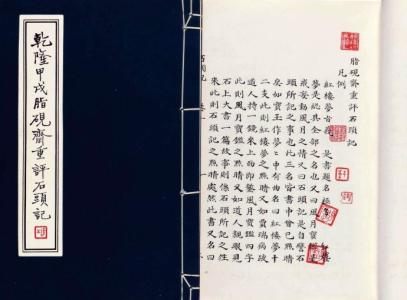 乾隆甲戌脂硯齋重評石頭記
脂硯齋重評石頭記
凡例
紅樓夢旨 是書題名極
夢是總其全部之名也又曰風月寶鑑是
戒妄動風月之情又曰石頭記是自譬石
頭所記之事也此三名皆書中曾已點睛
矣如寶玉作夢夢中有曲名曰紅樓夢十
二支此則紅樓夢之點睛又如賈瑞病跛
道人持一鏡來上面即鏨風月寶鑑四字
此則風月寶鑑之點睛又如道人親眼見
石上大書一篇故事則係石頭所記之往
來此則石頭記之點睛處然此書又名曰
石頭記 卷一